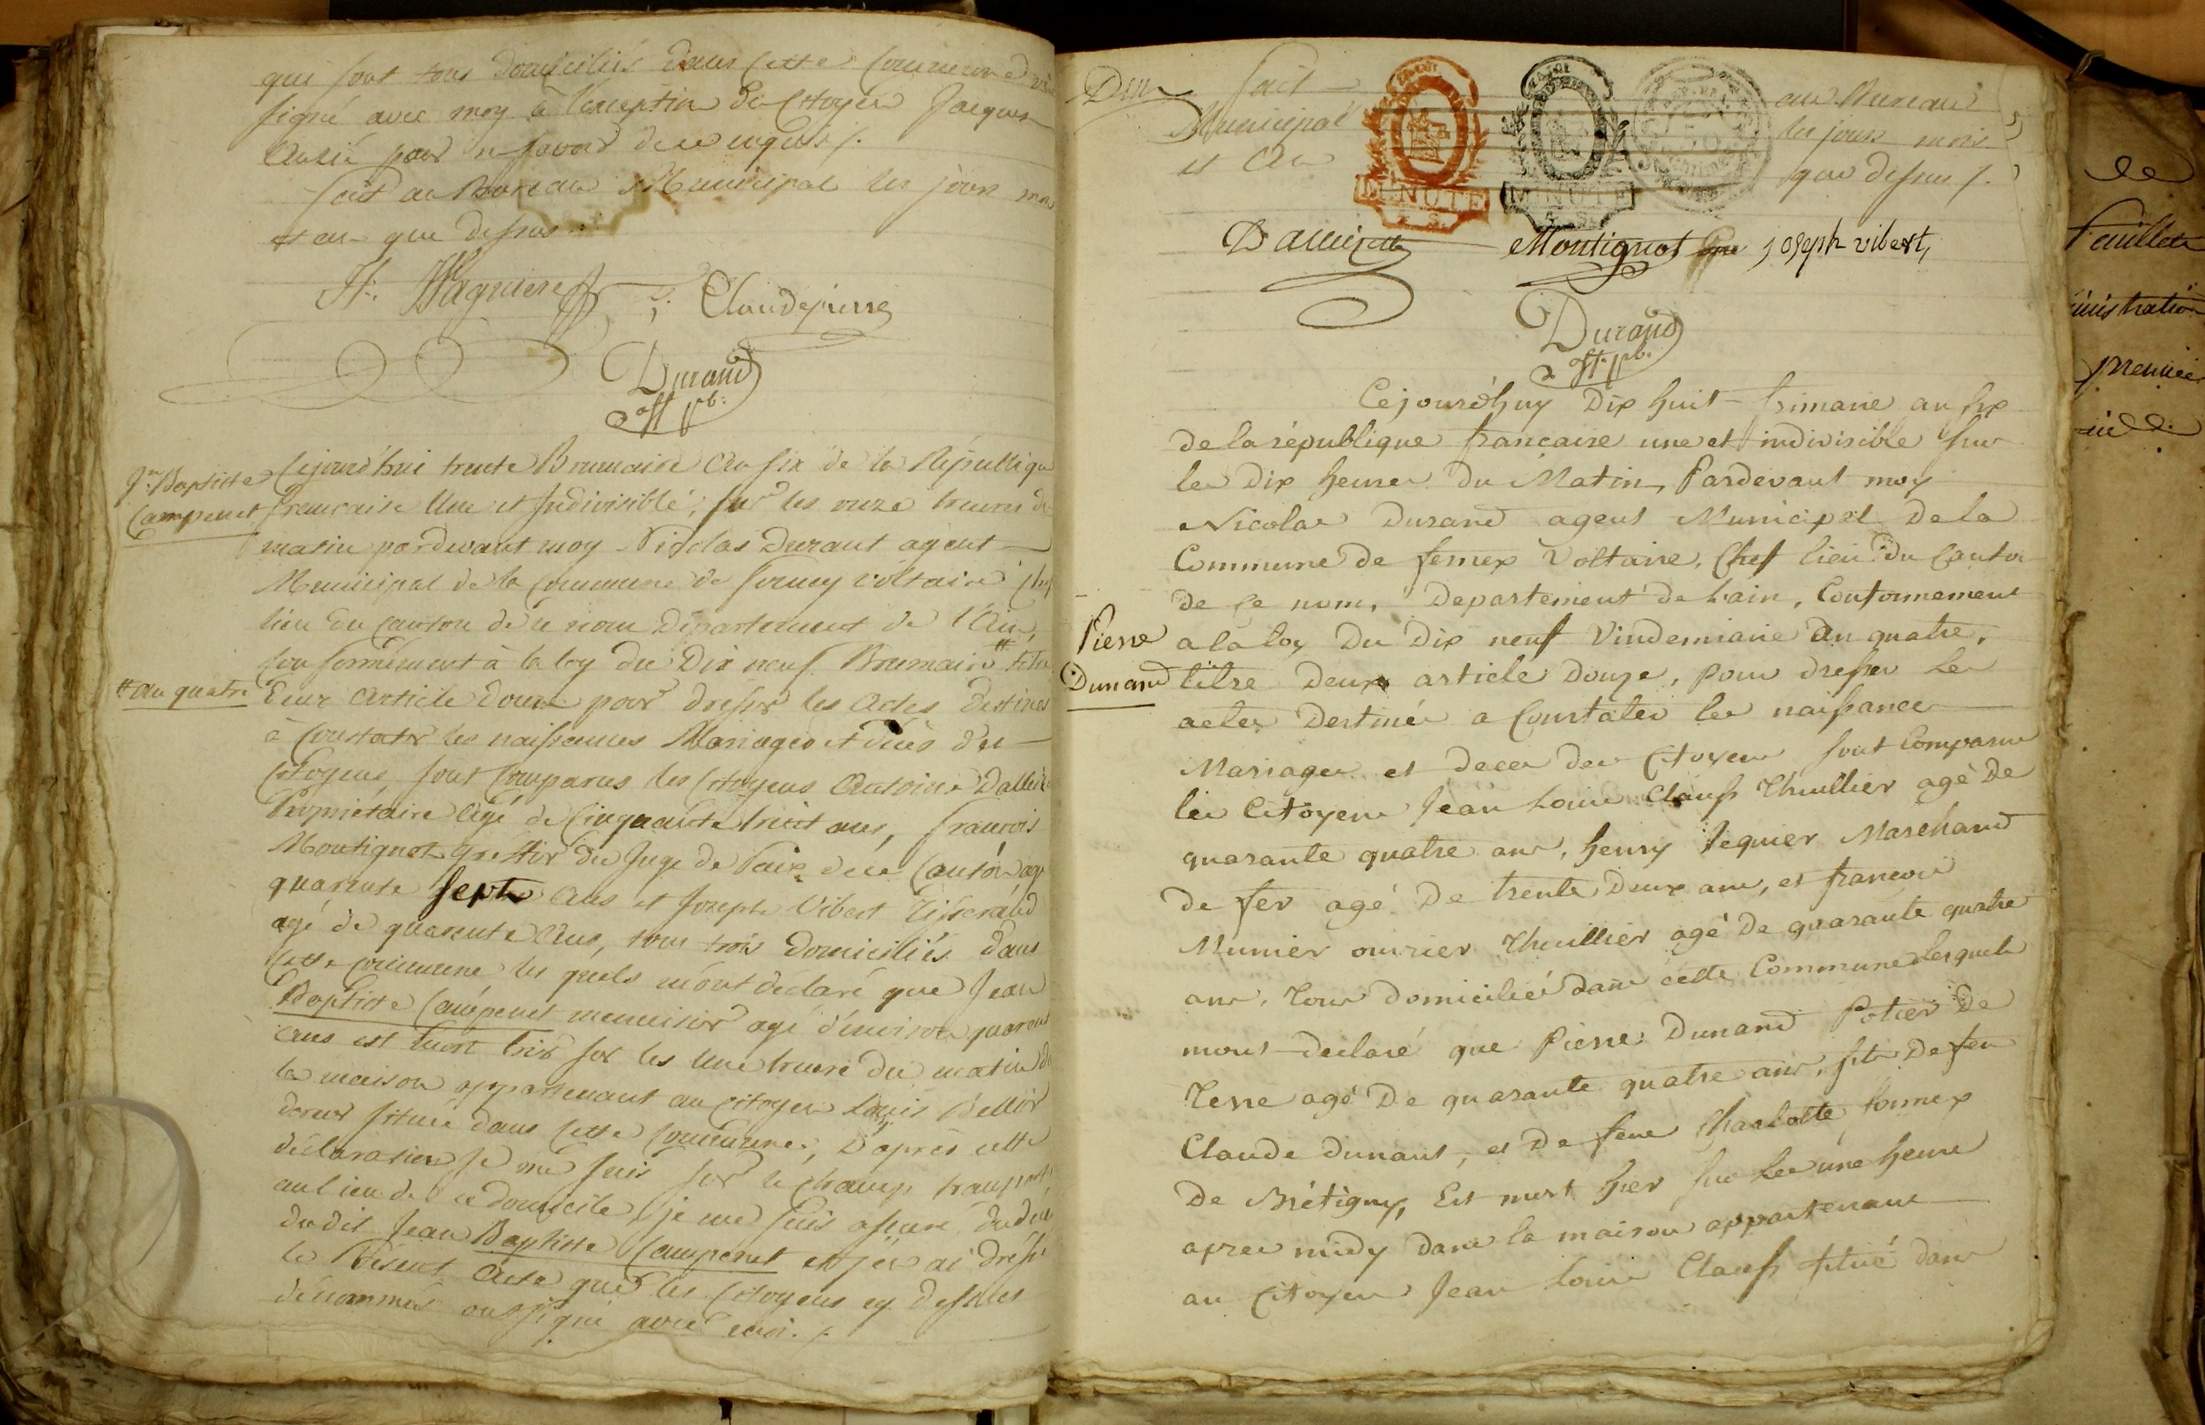 qui sont tous domiciliés dans cette commune
signé avec moy à l'exception du citoyen Jacques
pour ne savoir de ce enquis /.
fait au Bureau Municipal les jour mois
et an que dessus
H. Wagniere Claudepierre
Durand
Off. pb:
Jn. Baptiste
Campenet
Cejourd'hui trente Brumaire an six de la République
française Une et Indivisible, sur les onze heures du
matin pardevant moy Nicolas Durant agent
Municipal de la commune de ferney voltaire chef
lieu du canton de ce nom Département de l'Ain,
conformément à la loy du Dix neuf Brumaire # titre
# an quatre
deux article douze pour dresser les actes destinés
à constater les naissances Mariages et décès des
Citoyens sont comparus les citoyens Antoine
Propriétaire agé de cinquante huit ans, francois
Montignot greffier du Juge de Paix de ce canton agé
quarente sept ans et Joseph Vibert Tisserand
agé de quarente ans, tous trois domiciliés dans
cette commune les quels m'ont déclaré que Jean
Baptiste Campenet menuisier agé d'environ quarente
ans est mort hier sur les une heure du matin
la maison appartenant au citoyen Louis Bellor
située dans cette commune, D'après cette
déclaration je me suis sur le champ transporté
au lieu de ce domicile, je me suis assuré du décès
dudit Jean Baptiste Campenet et j'en ai dressé
le Présent Acte que les citoyens cy dessus
dénommés ont signé avec moi. /.
Dun fait au Bureau
Municipal les jour mois
et an que dessus /.
MINUTE MINUTE
Montignot joseph vibert,
Durand
Off. pb.
Cejourd'huy Dix huit frimaire an six
de la république française une et indivisible sur
les Dix heures du Matin, Pardevant moy
Nicolas Durand agent Municipal de la
Commune de fernex Voltaire, Chef lieu du Canton
de ce nom, Departement de L'ain, Conformement
Pierre
Dunand
a la loy Du Dix neuf Vindemiaire An quatre,
titre Deux article Douze, Pour dresser Les
actes Destinés a Constater les naissances
Mariages et deces des Citoyens sont Comparus
les Citoyens Jean Louis Clauss Thuillier agé De
quarante quatre ans, henry Jequier Marchand
De fer agé De trente Deux ans, et francois
Munier ouvrier Thuillier agé De quarante quatre
ans, Tous Domiciliés dans cette Commune Lesquels
mont declaré que Pierre Dunand Potier De
Terre agé De quarante quatre ans, fils De feu
Claude dunant, et De feue Charlotte fornex
De Brétigny, Est mort hier sur Les une heure
apres midy dans la maison appartenant
au Citoyen Jean Louis Clauss situé dans
feuillets
premier